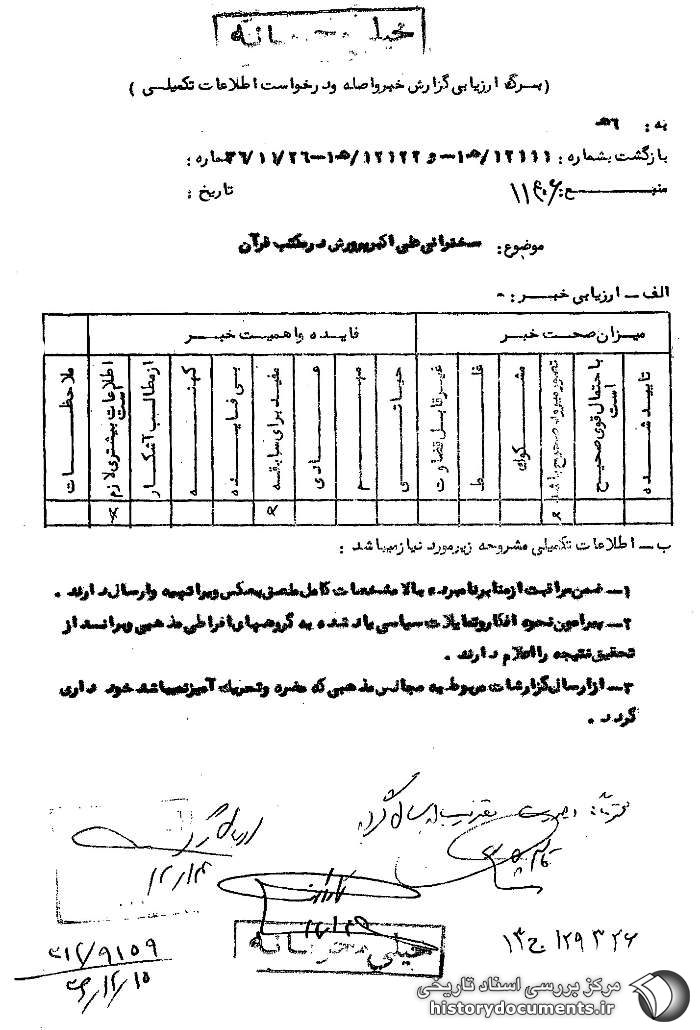 خیلی محرمانه
(برگ ارزیابی گزارش خبر واصله و درخواست اطلاعات تکمیلی)
به: ۵۳۶
بازگشت بشماره: ۱۲۱۱۱/ ۱۵ه‍ـ و ۱۲۱۲۲/ ۱۵ه‍ـ ۳۶/۱۱/۲۶ شماره:
منبع: تاریخ:
موضوع: سخنرانی علی اکبر پرورش در مکتب قرآن
الف ـ ارزیابی خبر: ـ
میزان صحت خبر
فایده و اهمیت خبر
تایید شده
با احتمال قوی صحیح است
تصور میرود صحیح باشد
مشکوک
غلط
غیر قابل قضاوت
حیاتی
مهم
عادی
مفید برای سابقه
بی فایده
کهنه
از مطالب آشکار
اطلاعات بیشتری لازم است
ملاحظات
ب ـ اطلاعات تکمیلی مشروحه زیر مورد نیاز میباشد:
۱ـ ضمن مراقبت از منابر نامبرده بالا مشخصات کامل ملصق بعکس ویرا تهیه و ارسال دارند.
۲ـ پیرامون نحوه افکار و تمایلات سیاسی یاد شده به گروههای افراطی مذهبی ویرا نسد از
تحقیق نتیجه را اعلام دارند.
۳ـ از ارسال گزارشات مربوط به مجالس مذهبی که مضره و تحریک آمیز نمیباشد خود داری
گردد.
۱۲/۱۴
خیلی محرمانه
۱۲۹۳۲۶
۹۱۵۹
مرکز بررسی اسناد تاریخی
historydocuments.ir